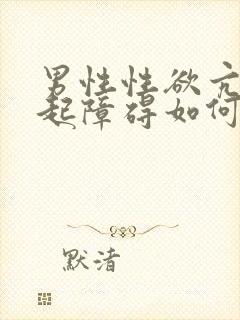 男性性欲亢
起障碍如何
默渚